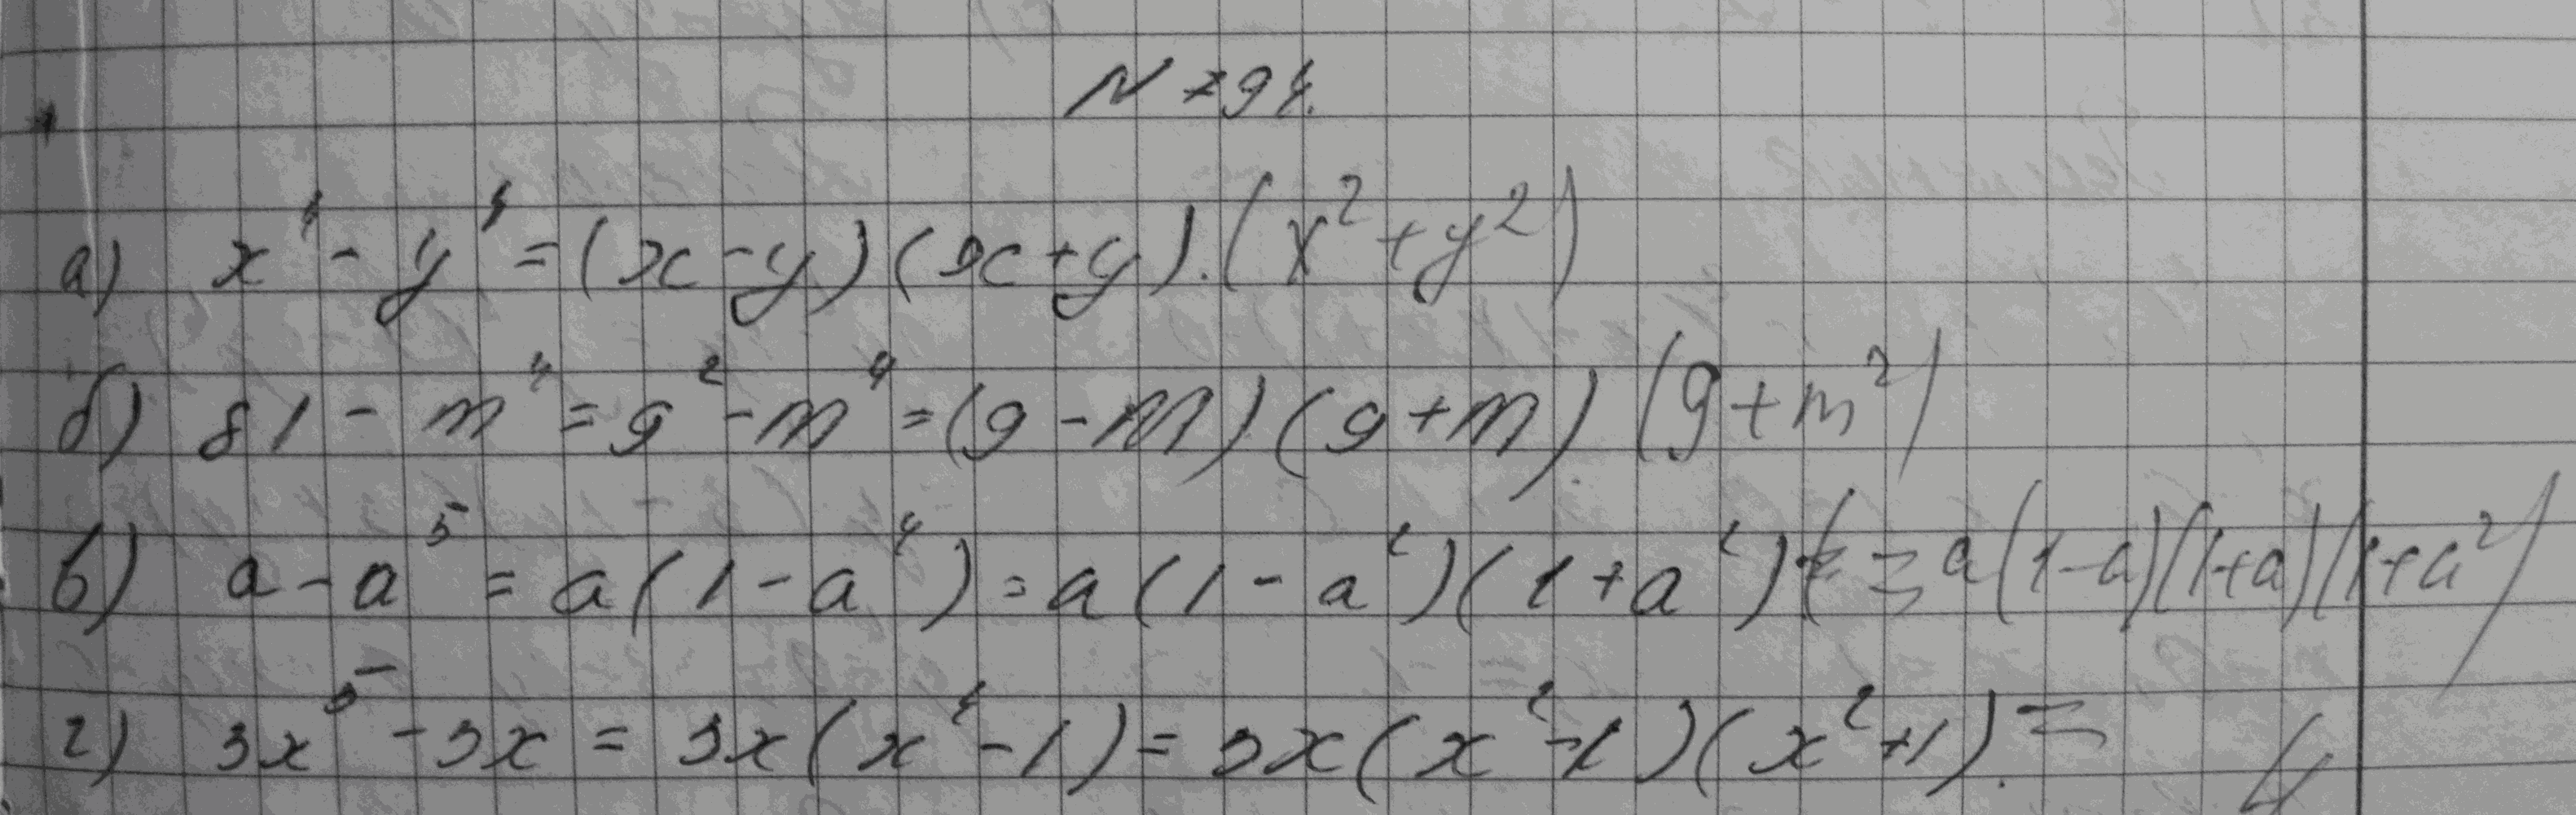 N 794.
а) x⁴ - y⁴ = (x - y)(x + y).(x² + y²)
б) 81 - m⁴ = 9² - m⁴ = (9 - m)(9 + m) (9 + m²)
в) a - a⁵ = a(1 - a⁴) = a(1 - a²)(1 + a²) = a(1-a)(1+a)(1+a²)
г) 3x⁵ - 3x = 3x(x⁴ - 1) = 3x(x² - 1)(x² + 1). =
4